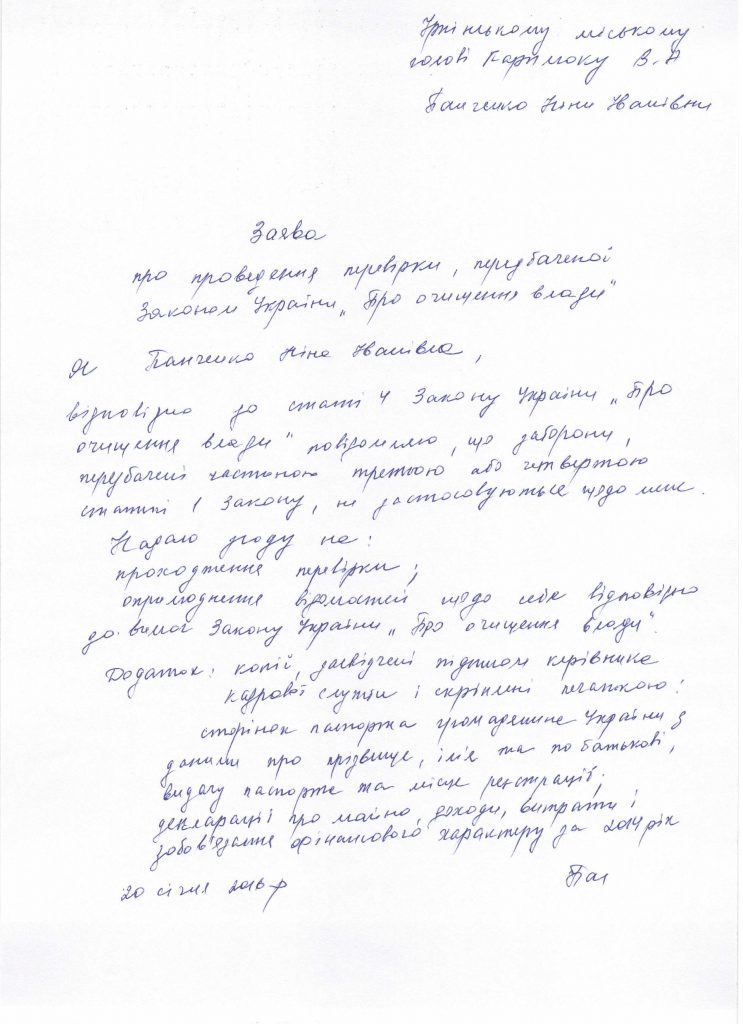 Ірпінському міському
голові Карплюку В.А
Панченко Ніни Іванівни
Заява
про проведення перевірки, передбаченої
Законом України „Про очищення влади"
Я Панченко Ніна Іванівна,
відповідно до статті 4 Закону України „Про
очищення влади" повідомляю, що заборони,
передбачені частиною третьою або четвертою
статті 1 Закону, не застосовуються щодо мене.
Надаю згоду на:
проходження перевірки;
оприлюднення відомостей щодо себе відповідно
до вимог Закону України „Про очищення влади".
Додаток: копії, засвідчені підписом керівника
кадрової служби і скріплені печаткою:
сторінок паспорта громадянина України з
даними про прізвище, ім'я та по батькові,
видачу паспорта та місце реєстрації;
декларації про майно, доходи, витрати і
зобов'язання фінансового характеру за 2014 рік
20 січня 2016 р Пан